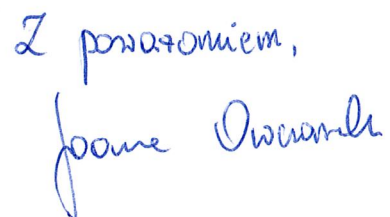 Z poważaniem,
Joanna Owczarek